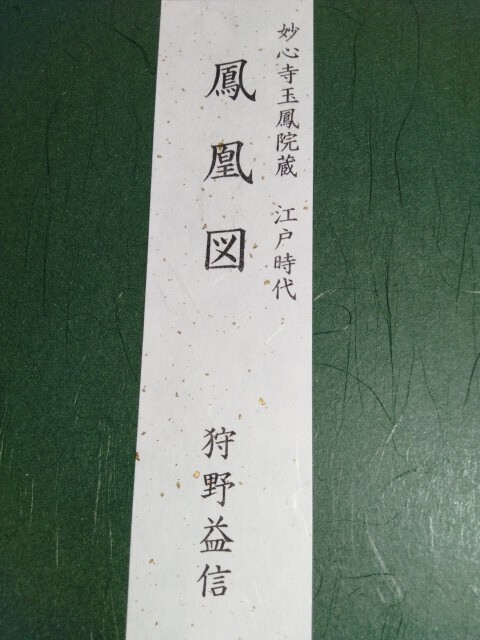 妙心寺玉鳳院蔵　江戸時代
鳳凰図
狩野益信